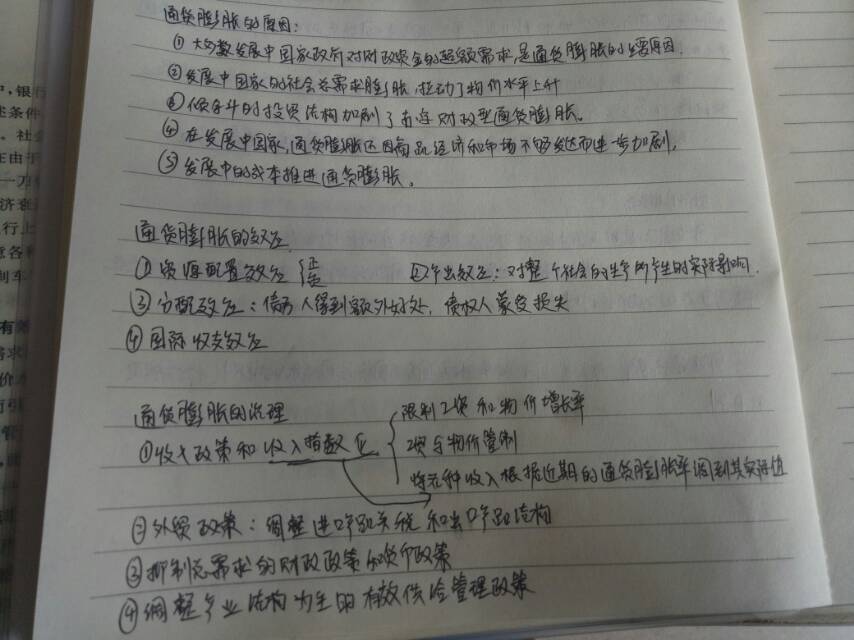 通货膨胀的原因:
①大多数发展中国家政府对财政资金的超额需求,是通货膨胀的主要原因.
②发展中国家的社会总需求膨胀,拉动了物价水平上升
③倾斜的投资结构加剧了赤字财政型通货膨胀。
④在发展中国家,通货膨胀还因商品经济和市场不够发达而进一步加剧.
⑤发展中的成本推进通货膨胀。
通货膨胀的效应
①资源配置效应{正 负 ②产出效应:对整个社会的生产所产生的实际影响.
③分配效应:债务人得到额外好处,债权人蒙受损失
④国际收支效应
通货膨胀的治理
限制工资和物价增长率
①收入政策和收入指数化
工资与物价管制
将各种收入根据近期的通货膨胀率调到其实际值
②外贸政策:调整进口关税和出口结构
③抑制总需求的财政政策和货币政策
④调整产业结构为主的有效供给管理政策
有
一万
行上
制车